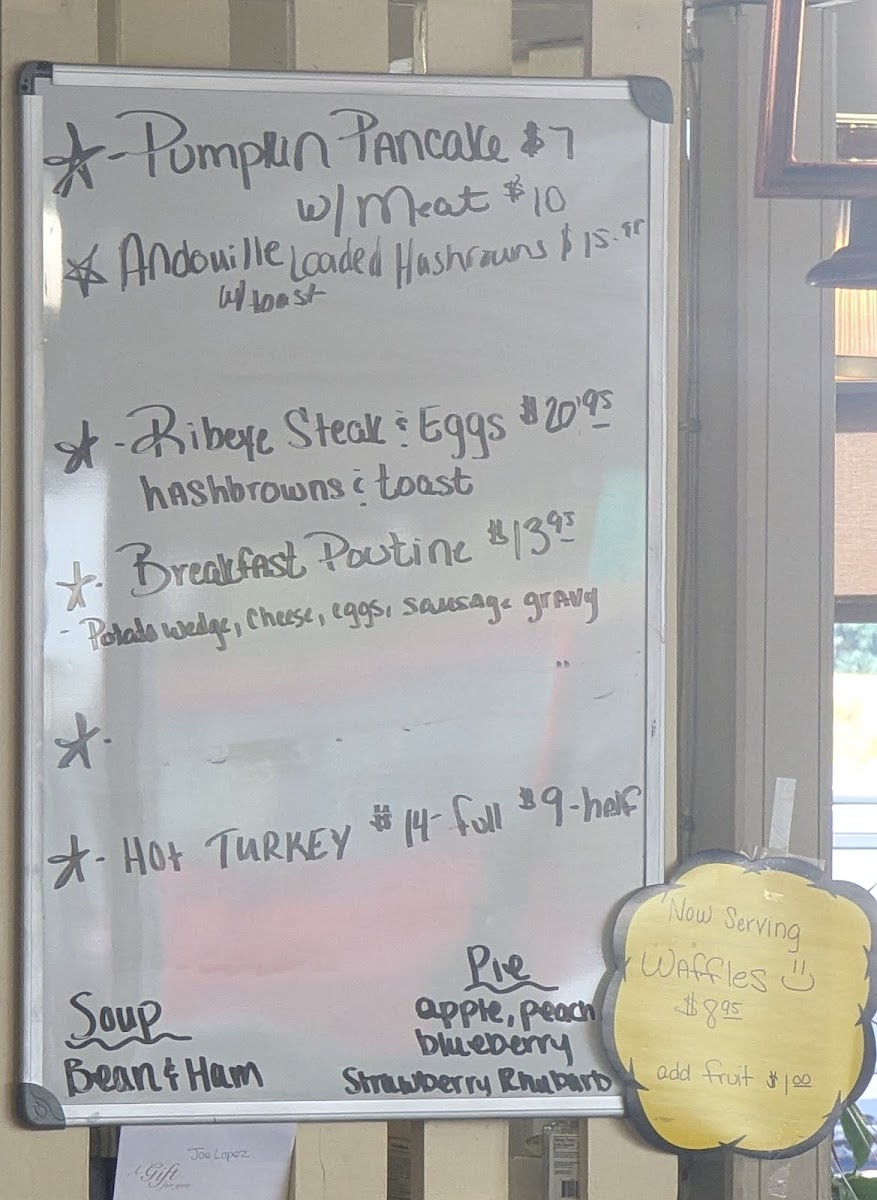 Pumpkin Pancake $7
w/ Meat $10
Andouille Loaded Hashrowns $15.95
w/ toast
Ribeye Steak & Eggs $20.95
hashbrowns & toast
Breakfast Poutine $13.95
- Potato wedge, Cheese, eggs, sausage gravy
Hot TURKEY $14-full $9-half
Soup
Bean & Ham
Pie
apple, peach
blueberry
Strawberry Rhubarb
Now Serving
Waffles
$8.95
add fruit $1.00
Joe Lopez
A Gift
for you